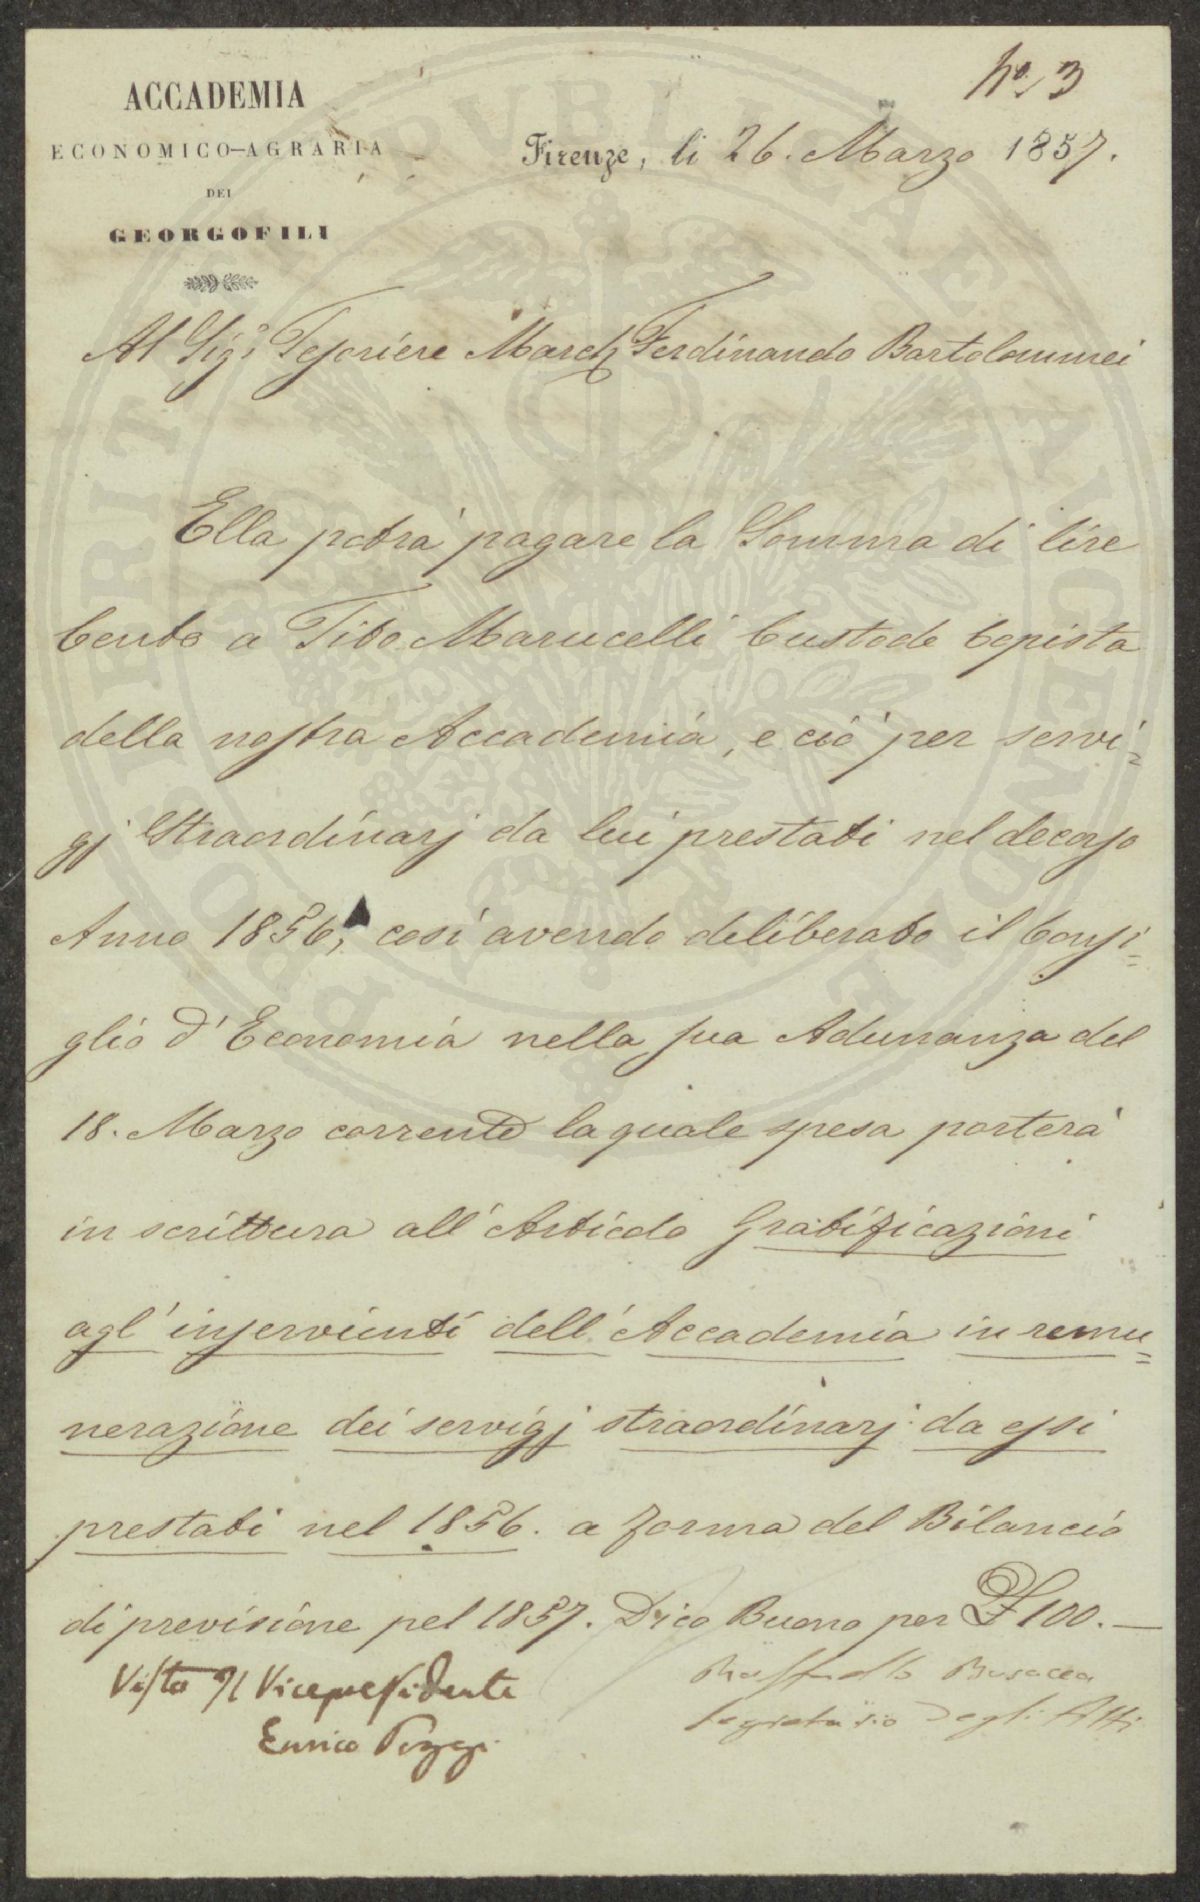 No. 3
ACCADEMIA
ECONOMICO-AGRARIA
DEI
GEORGOFILI
Firenze, li 26. Marzo 1857.
Al Sigr. Tesoriere March. Ferdinando Bartolommei
Ella potrà pagare la Somma di lire
Cento a Tito Marucelli Custode Copista
della nostra Accademia, e ciò per servi=
gj Straordinarj da lui prestati nel decorso
Anno 1856, così avendo deliberato il Consi=
glio d'Economia nella sua Adunanza del
18. Marzo corrente la quale spesa porterà
in scrittura all'Articolo Gratificazioni
agl'inservienti dell'Accademia in remu=
nerazione dei servigj straordinarj da essi
prestati nel 1856. a forma del Bilancio
di previsione pel 1857. Dico Buono per £ 100.—
Visto Il Vicepresidente
Enrico Poggi
Raffaello Busacca
Segretario degli Atti
PROSPERITATI PUBLICAE AUGENDAE